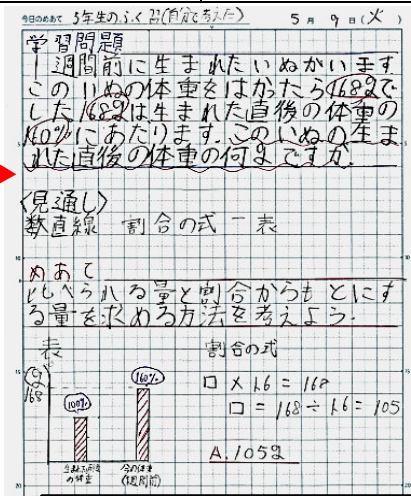 今日のめあて 5年生のふく習(自分で考えた) 5月9日(火)
学習問題
1週間前に生まれたいぬがいます
このいぬの体重をはかったら168gで
した。168gは生まれた直後の体重の
160%にあたります。このいぬの生ま
れた直後の体重の何gですか.
〈見通し〉
数直線 割合の式 表
めあて
比べられる量と割合からもとにす
る量を求める方法を考えよう.
表 割合の式
(g)
168
100%
160%
□×1.6=168
□=168÷1.6=105
A.105g
の体重
今の体重
(1週間前)